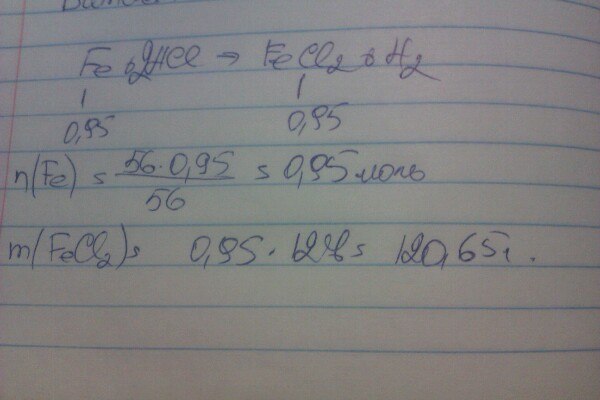 Fe + 2HCl → FeCl2 + H2
1 1
0,95 0,95
n(Fe) = 56·0,95 / 56 = 0,95 моль
m(FeCl2) = 0,95 · 127 = 120,65 г.